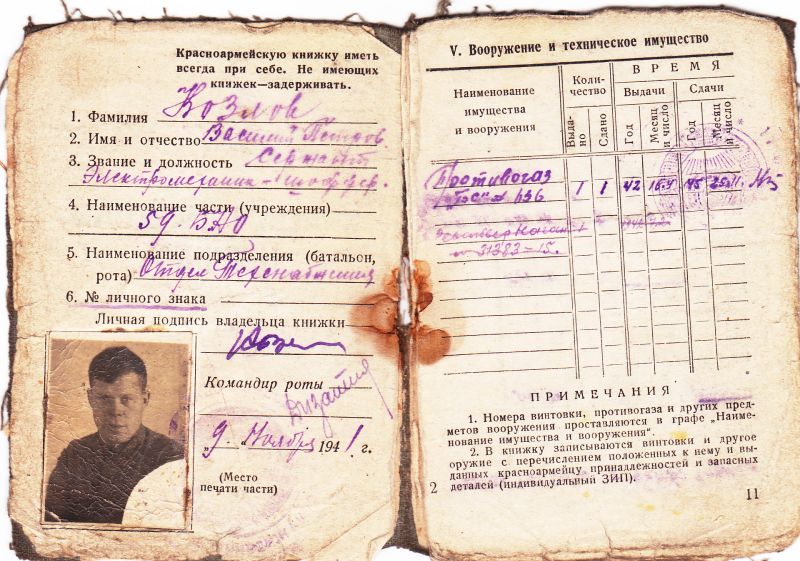 Красноармейскую книжку иметь
всегда при себе. Не имеющих
книжек—задерживать.
1. Фамилия Козлов
2. Имя и отчество Василий Петров
3. Звание и должность Сержант
Электромеханик-шоффер.
4. Наименование части (учреждения)
59. БАО
5. Наименование подразделения (батальон,
рота) Отдел Техснабжения
6. № личного знака
Личная подпись владельца книжки
Командир роты
„9" Ноября 1941 г.
(Место
печати части)
2
V. Вооружение и техническое имущество
Наименование
имущества
и вооружения
Коли-
чество
Выда-
но
Сдано
ВРЕМЯ
Выдачи
Сдачи
Год
Месяц
и число
Год
Месяц
и число
Противогаз 1 1 42 45
№ 31383-15.
ПРИМЕЧАНИЯ
1. Номера винтовки, противогаза и других пред-
метов вооружения проставляются в графе „Наиме-
нование имущества и вооружения".
2. В книжку записываются винтовки и другое
оружие с перечислением положенных к нему и вы-
данных красноармейцу принадлежностей и запасных
деталей (индивидуальный ЗИП).
11